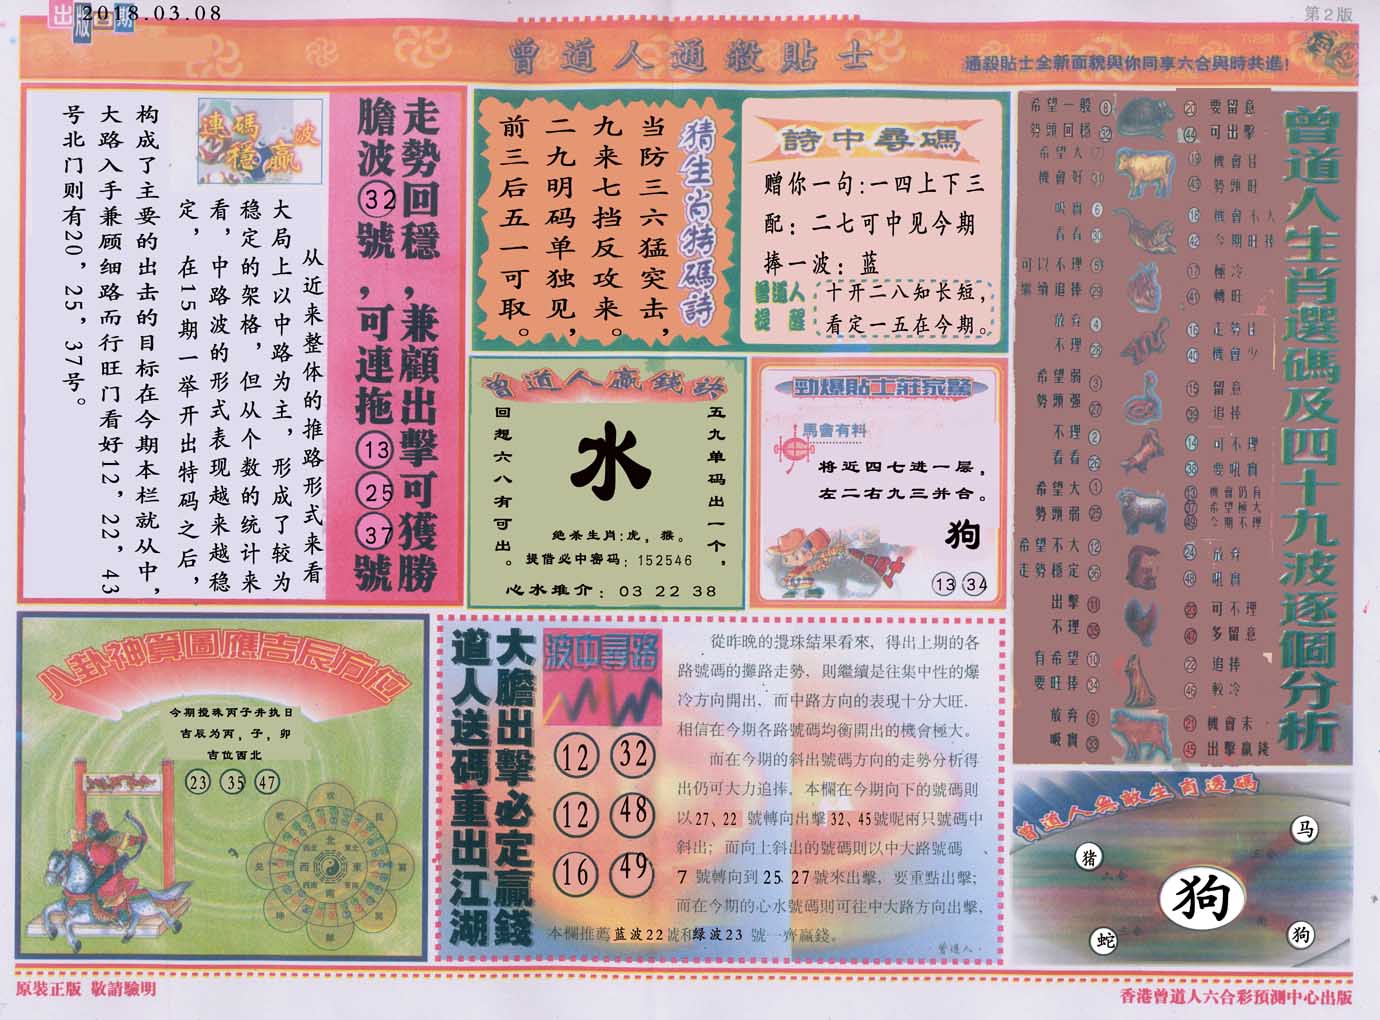 出版日期
2018.03.08
第2版
曾道人通殺貼士
通殺貼士全新面貌與你同享六合與時共進!
走勢回穩,兼顧出擊可獲勝
膽波32號,可連拖13 25 37號
連碼波
穩贏
从近来整体的推路形式来看
大局上以中路为主,形成了较为
稳定的架格,但从个数的统计来
看,中路波的形式表现越来越稳
定,在15期一举开出特码之后,
构成了主要的出击的目标在今期本栏就从中,
大路入手兼顾细路而行旺门看好12,22,43
号北门则有20,25,37号。
猜生肖特碼詩
当防三六猛突击,
九来七挡反攻来。
二九明码单独见,
前三后五一可取。
詩中尋碼
赠你一句:一四上下三
配:二七可中见今期
捧一波:蓝
曾道人
提醒
十开二八知长短,
看定一五在今期。
曾道人贏錢詩
五九单码出一个,
回想六八有可出。
水
绝杀生肖:虎,猴。
提借必中密码:152546
心水推介:03 22 38
勁爆貼士莊家驚
馬會有料
将近四七进一层,
左二右九三并合。
狗
13 34
曾道人生肖選碼及四十九波逐個分析
希望一般 8
勢頭回穩 32
20 要留意
44 可出擊
希望大
機會好 31
19 機會佳
43 勢頭旺
吼實 6
看看 30
18 機會不大
42 今期旺捧
可以不理 5
繼續追捧 29
17 極冷
41 轉旺
放弃 4
不理 28
16 走勢佳
40 機會少
希望弱 3
勢頭强 27
15 留意
39 追捧
不理 2
看看 26
14 可不理
38 要吼實
希望大 1
勢頭弱 25
13 機會仍有
37 希望極大
49 今期不理
希望不大 12
走勢穩定 36
24 放弃
48 吼實
出擊 11
不理 35
23 可不理
47 多留意
有希望 10
要旺捧 34
22 追捧
46 較冷
放弃 9
吼實 33
21 機會未
45 出擊贏錢
八卦神算圖應吉辰方位
今期搅珠丙子井执日
吉辰为丙,子,卯
吉位西北
23 35 47
北
東
南
西
大膽出擊必定贏錢
道人送碼重出江湖
波中尋路
12 32
12 48
16 49
從昨晚的攪珠結果看來,得出上期的各
路號碼的攤路走勢,則繼續是往集中性的爆
冷方向開出,而中路方向的表現十分大旺.
相信在今期各路號碼均衡開出的機會極大。
而在今期的斜出號碼方向的走勢分析得
出仍可大力追捧,本欄在今期向下的號碼則
以27、22 號轉向出擊32、45號呢兩只號碼中
斜出;而向上斜出的號碼則以中大路號碼、
7 號轉向到25 27號來出擊,要重點出擊;
而在今期的心水號碼則可往中大路方向出擊,
本欄推薦蓝波22號和绿波23 號一齊贏錢。
曾道人.
曾道人無敵生肖透碼
马
猪
狗
蛇
狗
原裝正版 敬請驗明
香港曾道人六合彩預測中心出版